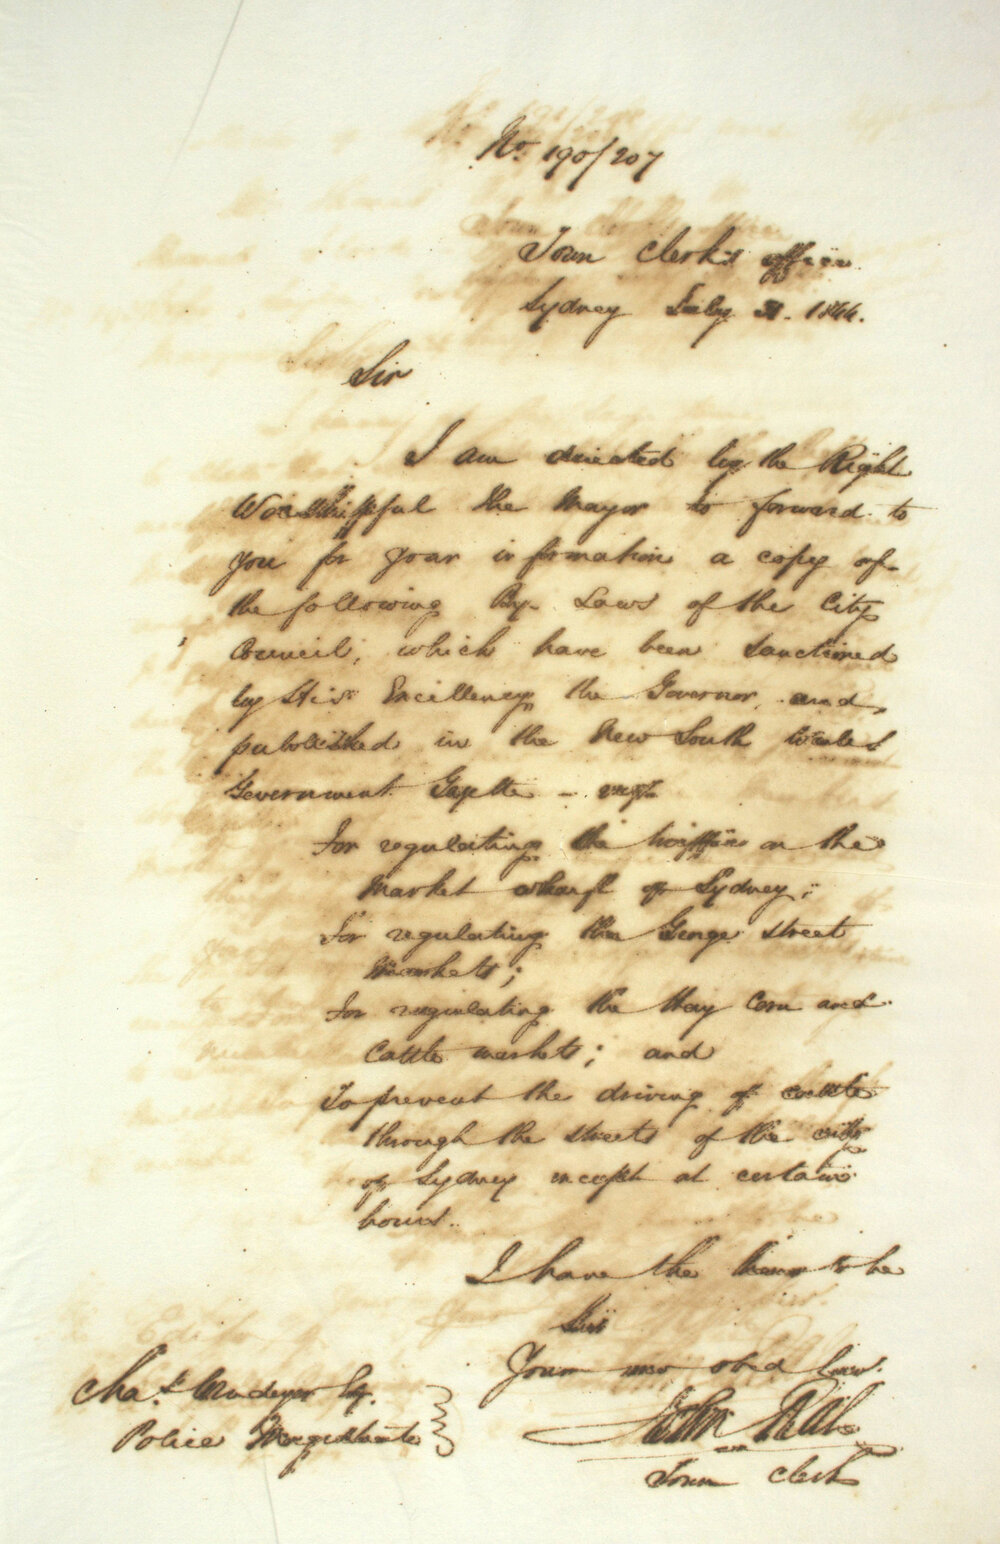 No. 190/207
Town Clerk's office
Sydney July 31. 1844.
Sir
I am directed by the Right
Worshipful the Mayor to forward to
you for your information a copy of
the following By-Laws of the City
Council, which have been sanctioned
by His Excellency the Governor, and
published in the New South Wales
Government Gazette –
For regulating the on the
Market wharf of Sydney;
For regulating the George street
Markets;
For regulating the Hay Corn and
Cattle markets; and
To prevent the driving of cattle
through the streets of the city
of Sydney except at certain
hours.
I have the honor to be
Sir
Your mo obed
Chas. Esq.
Police Magistrate
John
Town Clerk